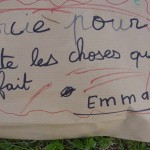 rcie pour
te les choses qu
fait
Emma